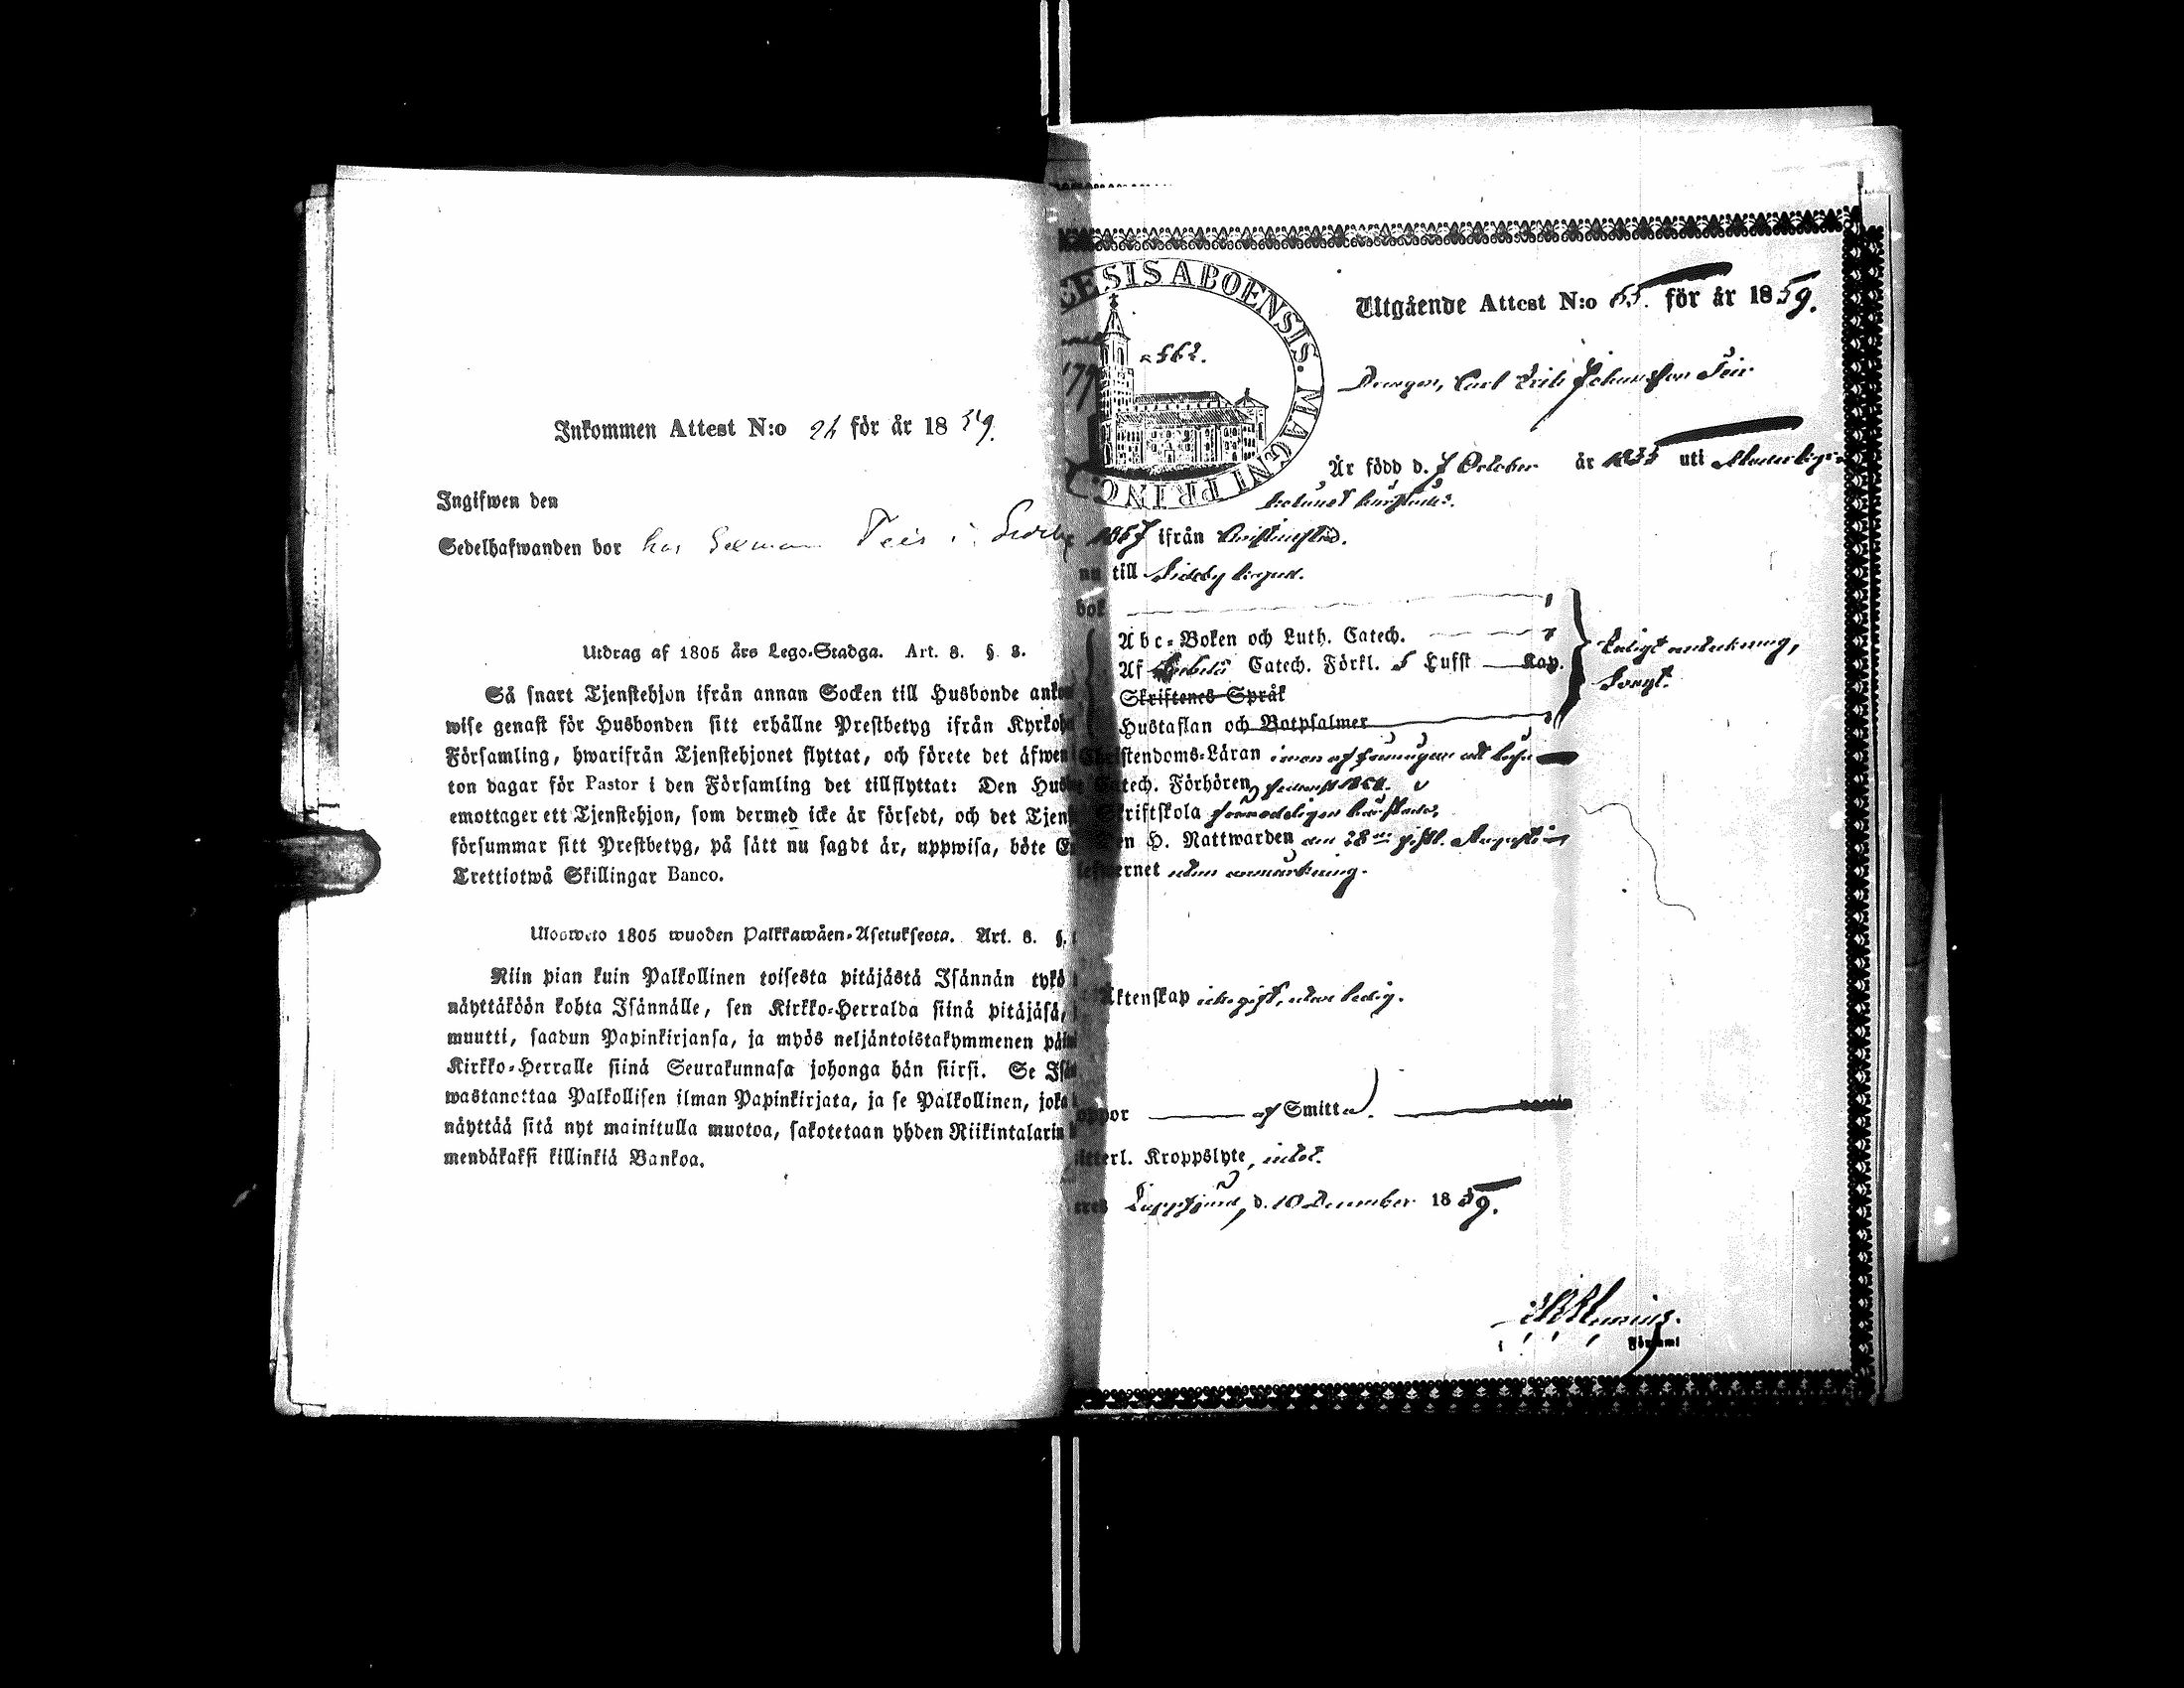 Inkommen Attest N:o 24 för år 1859.
Ingifwen den
Sedelhafwanden bor hos Sexman Teir i
Utdrag af 1805 års Lego-Stadga. Art. 8. §. 3.
Så snart Tjenstehjon ifrån annan Socken till Husbonde
wise genast för Husbonden sitt erhållne Prestbetyg ifrån
Församling, hwarifrån Tjenstehjonet flyttat, och förete det äfwen
ton dagar för Pastor i den Församling det tillflyttat: Den
emottager ett Tjenstehjon, som dermed icke är försedt, och det
försummar sitt Prestbetyg, på sätt nu sagdt är, uppwisa, böte
Trettiotwå Skillingar Banco.
Ulosweto 1805 wuoden Palkkawäen-Asetuksesta. Art. 8. §.
Niin pian kuin Palkollinen toisesta pitäjästä Isännän tykö
näyttäköön kohta Isännälle, sen Kirkko-Herralda siinä pitäjäsä,
muutti, saadun Papinkirjansa, ja myös neljäntoistakymmenen
Kirkko-Herralle siinä Seurakunnasa johonga hän siirsi. Se
wastanottaa Palkollisen ilman Papinkirjata, ja se Palkollinen, joka
näyttää sitä nyt mainitulla muotoa, sakotetaan yhden Riikintalarin
mendäkaksi killinkiä Bankoa.
ESIS ABOENSIS. MAGNI PRINC
562.
Utgående Attest N:o 65. för år 1859.
Drengen, Carl Erik Johansson Teir
Är född d. 7 October år 1835 uti
1857 ifrån Christinestad.
nu till Sideby
bok
Abc-Boken och Luth. Catech.
Af Catech. Förkl. 5 Hufst Kap.
Enligt anteckning,
Skriftenes Språk
Hustaflan och Botpsalmer
Christendoms-Läran
Catech. Förhören
Skriftskola
Den H. Nattwarden den 28
lefwernet utan anmärkning.
Äktenskap icke gift, utan ledig.
oppor af Smitta.
itterl. Kroppslyte, intet.
Lappfjerd, d. 10 December 1859.